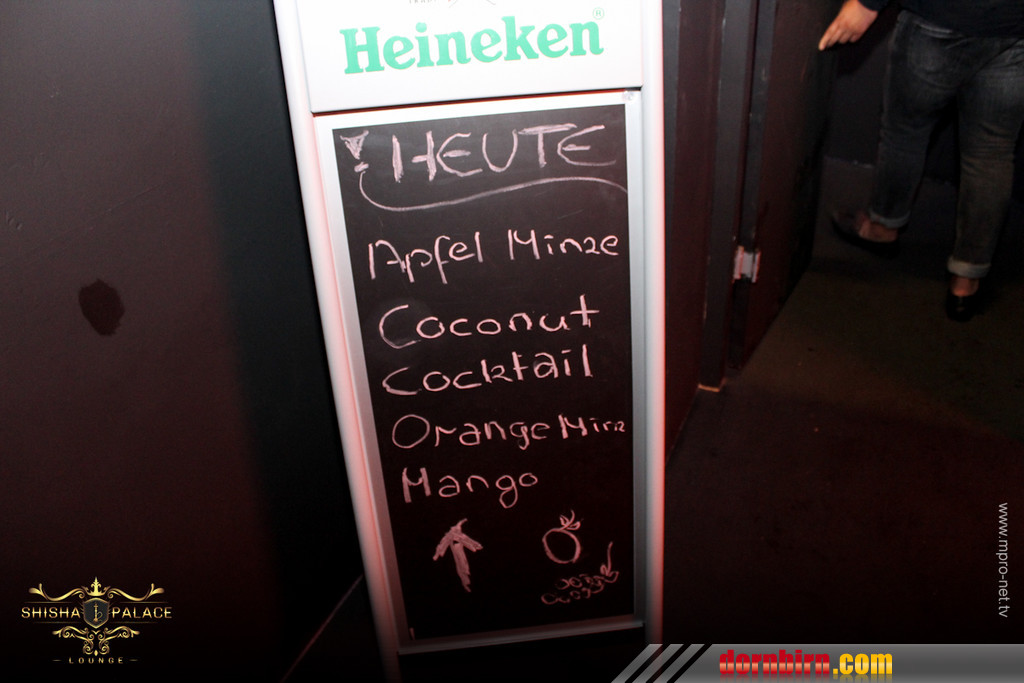 Heineken®
HEUTE
Apfel Minze
Coconut
Cocktail
Orange Minz
Mango
SHISHA PALACE
LOUNGE
www.mpro-net.tv
dornbirn.com